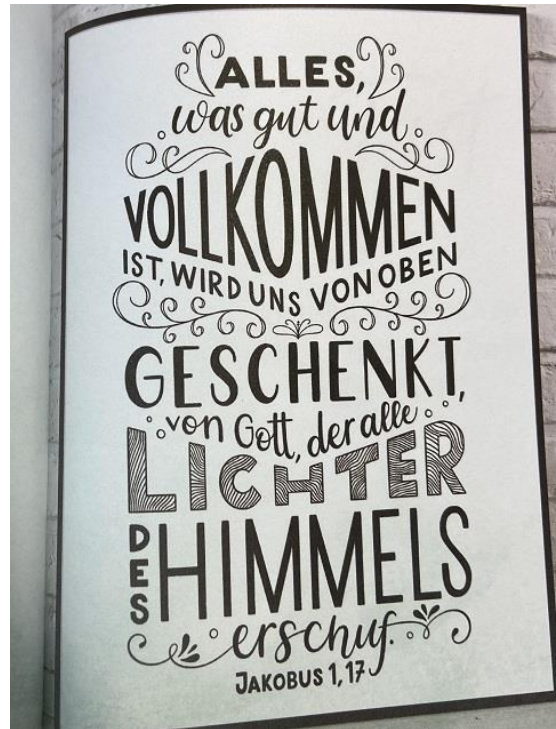 ALLES,
was gut und
VOLLKOMMEN
IST, WIRD UNS VON OBEN
GESCHENKT,
von Gott, der alle
LICHTER
DES HIMMELS
erschuf.
JAKOBUS 1, 17